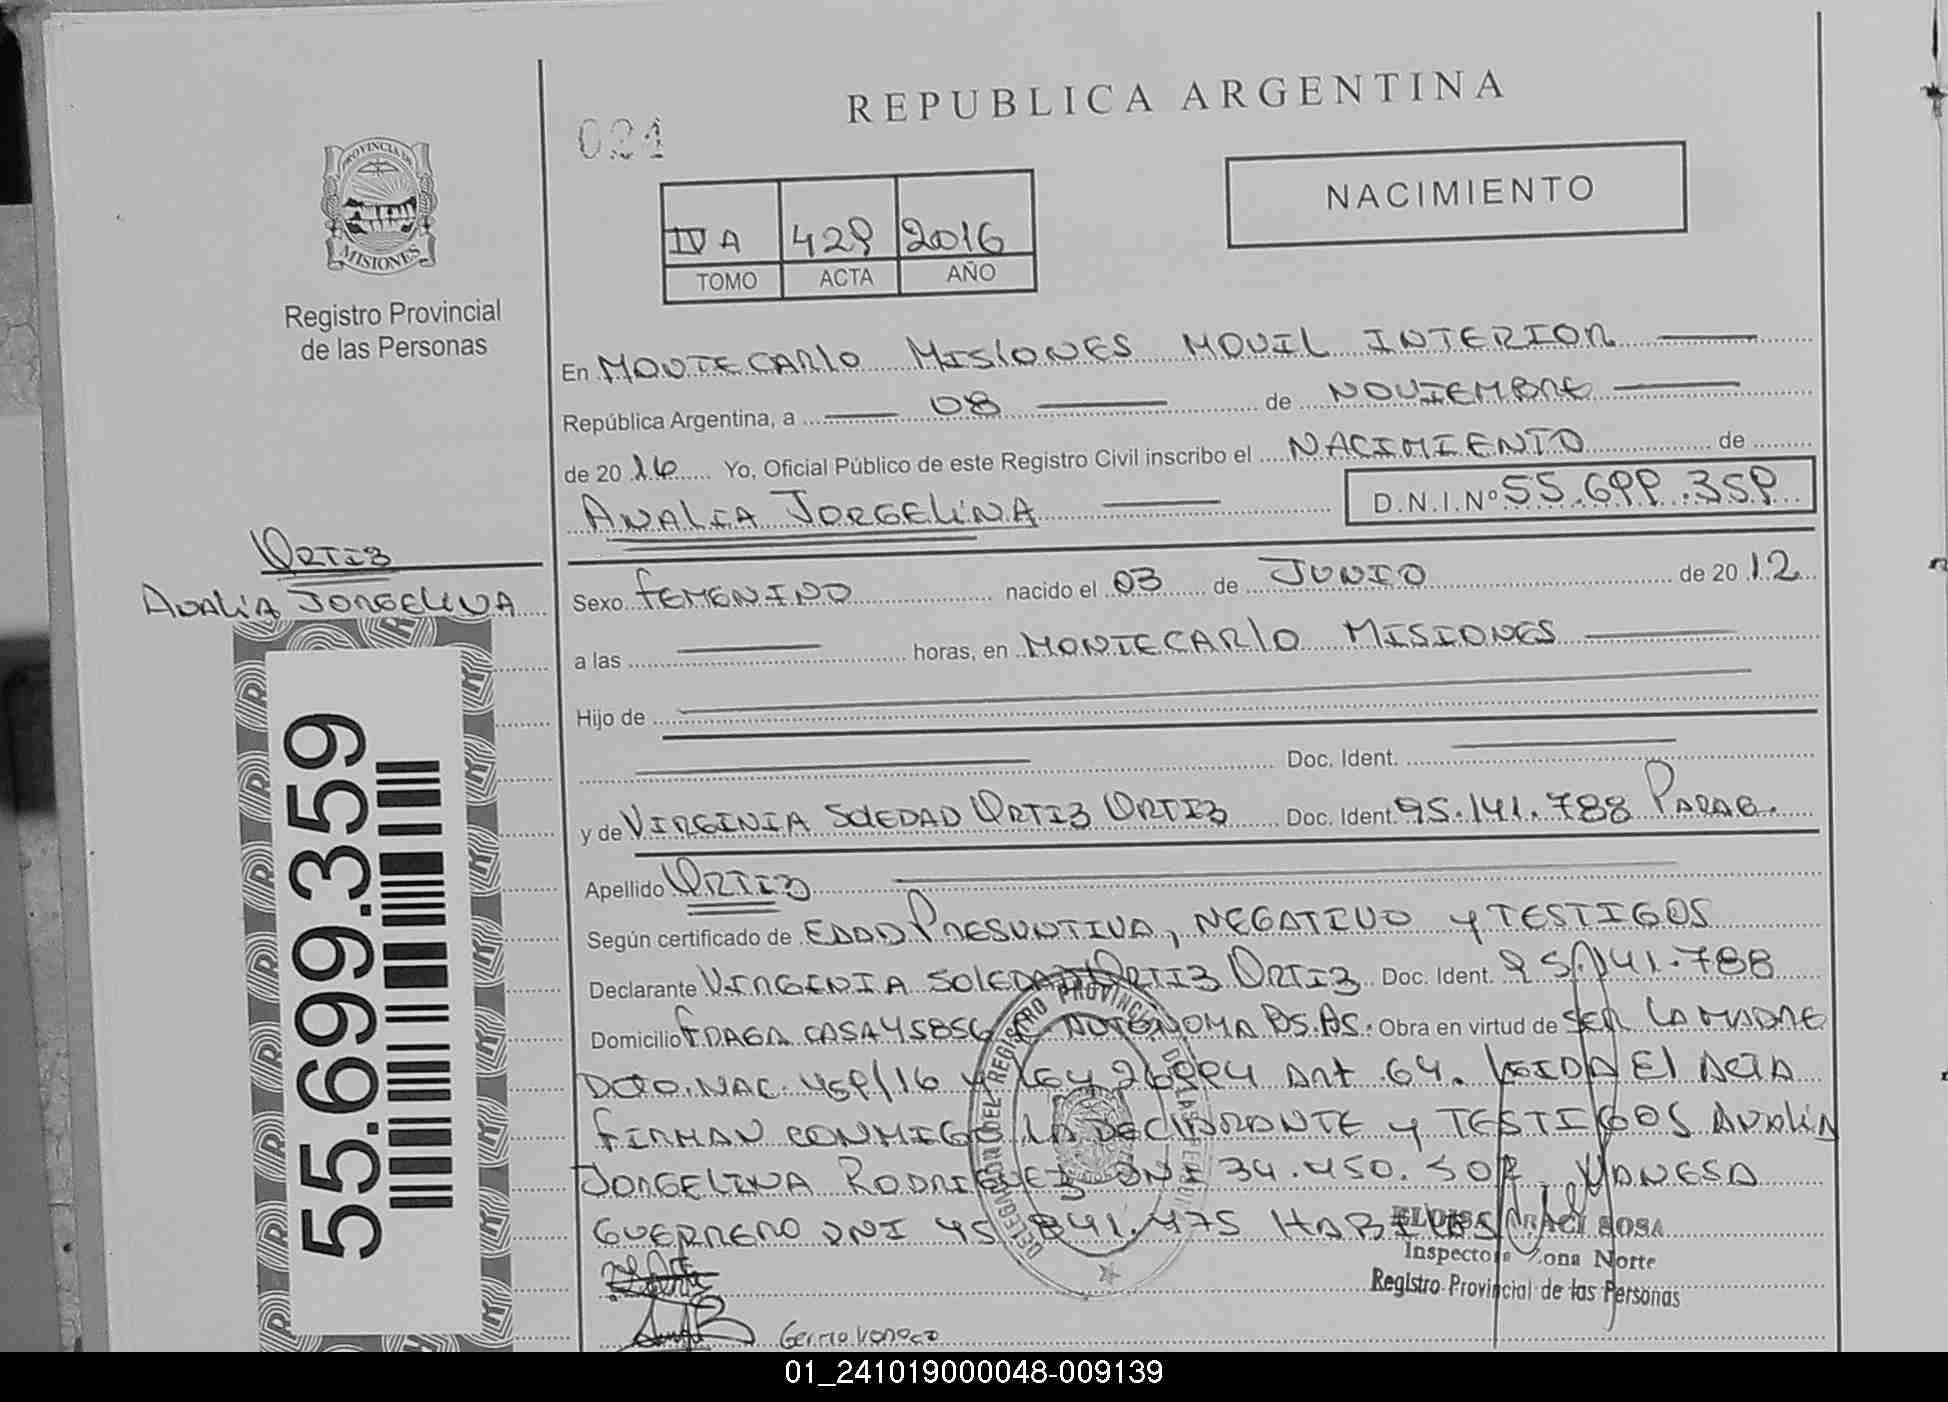 REPUBLICA ARGENTINA
024
NACIMIENTO
PROVINCIA DE
MISIONES
Registro Provincial
de las Personas
IV A 429 2016
TOMO ACTA AÑO
En MONTECARLO MISIONES MOVIL INTERIOR
República Argentina, a 08 de NOVIEMBRE
de 2016 Yo, Oficial Público de este Registro Civil inscribo el NACIMIENTO de
ANALIA JORGELINA D.N.I.Nº 55.699.359
ORTIZ
ANALIA JORGELINA
Sexo FEMENINO nacido el 03 de JUNIO de 2012
a las horas, en MONTECARLO MISIONES
Hijo de
Doc. Ident.
y de VIRGINIA SOLEDAD ORTIZ ORTIZ Doc. Ident. 95.141.788 PARAG.
Apellido ORTIZ
Según certificado de EDAD PRESUNTIVA, NEGATIVO y TESTIGOS
Declarante VIRGINIA SOLEDAD ORTIZ ORTIZ Doc. Ident. 95.141.788
Domicilio CASA AUTONOMA BS.AS. Obra en virtud de SER LA MADRE
NAC. 459/16 y LEY 26994 Art 64. LEIDA El ACTA
FIRMAN CONMIGO LA DECLARANTE y TESTIGOS ANALIA
JORGELINA RODRIGUEZ DNI 34.450. VANESA
GUERRERO DNI 45.841.475 HABILES
ELOISA ARACI SOSA
Inspectora Zona Norte
Registro Provincial de las Personas
55.699.359
01_241019000048-009139